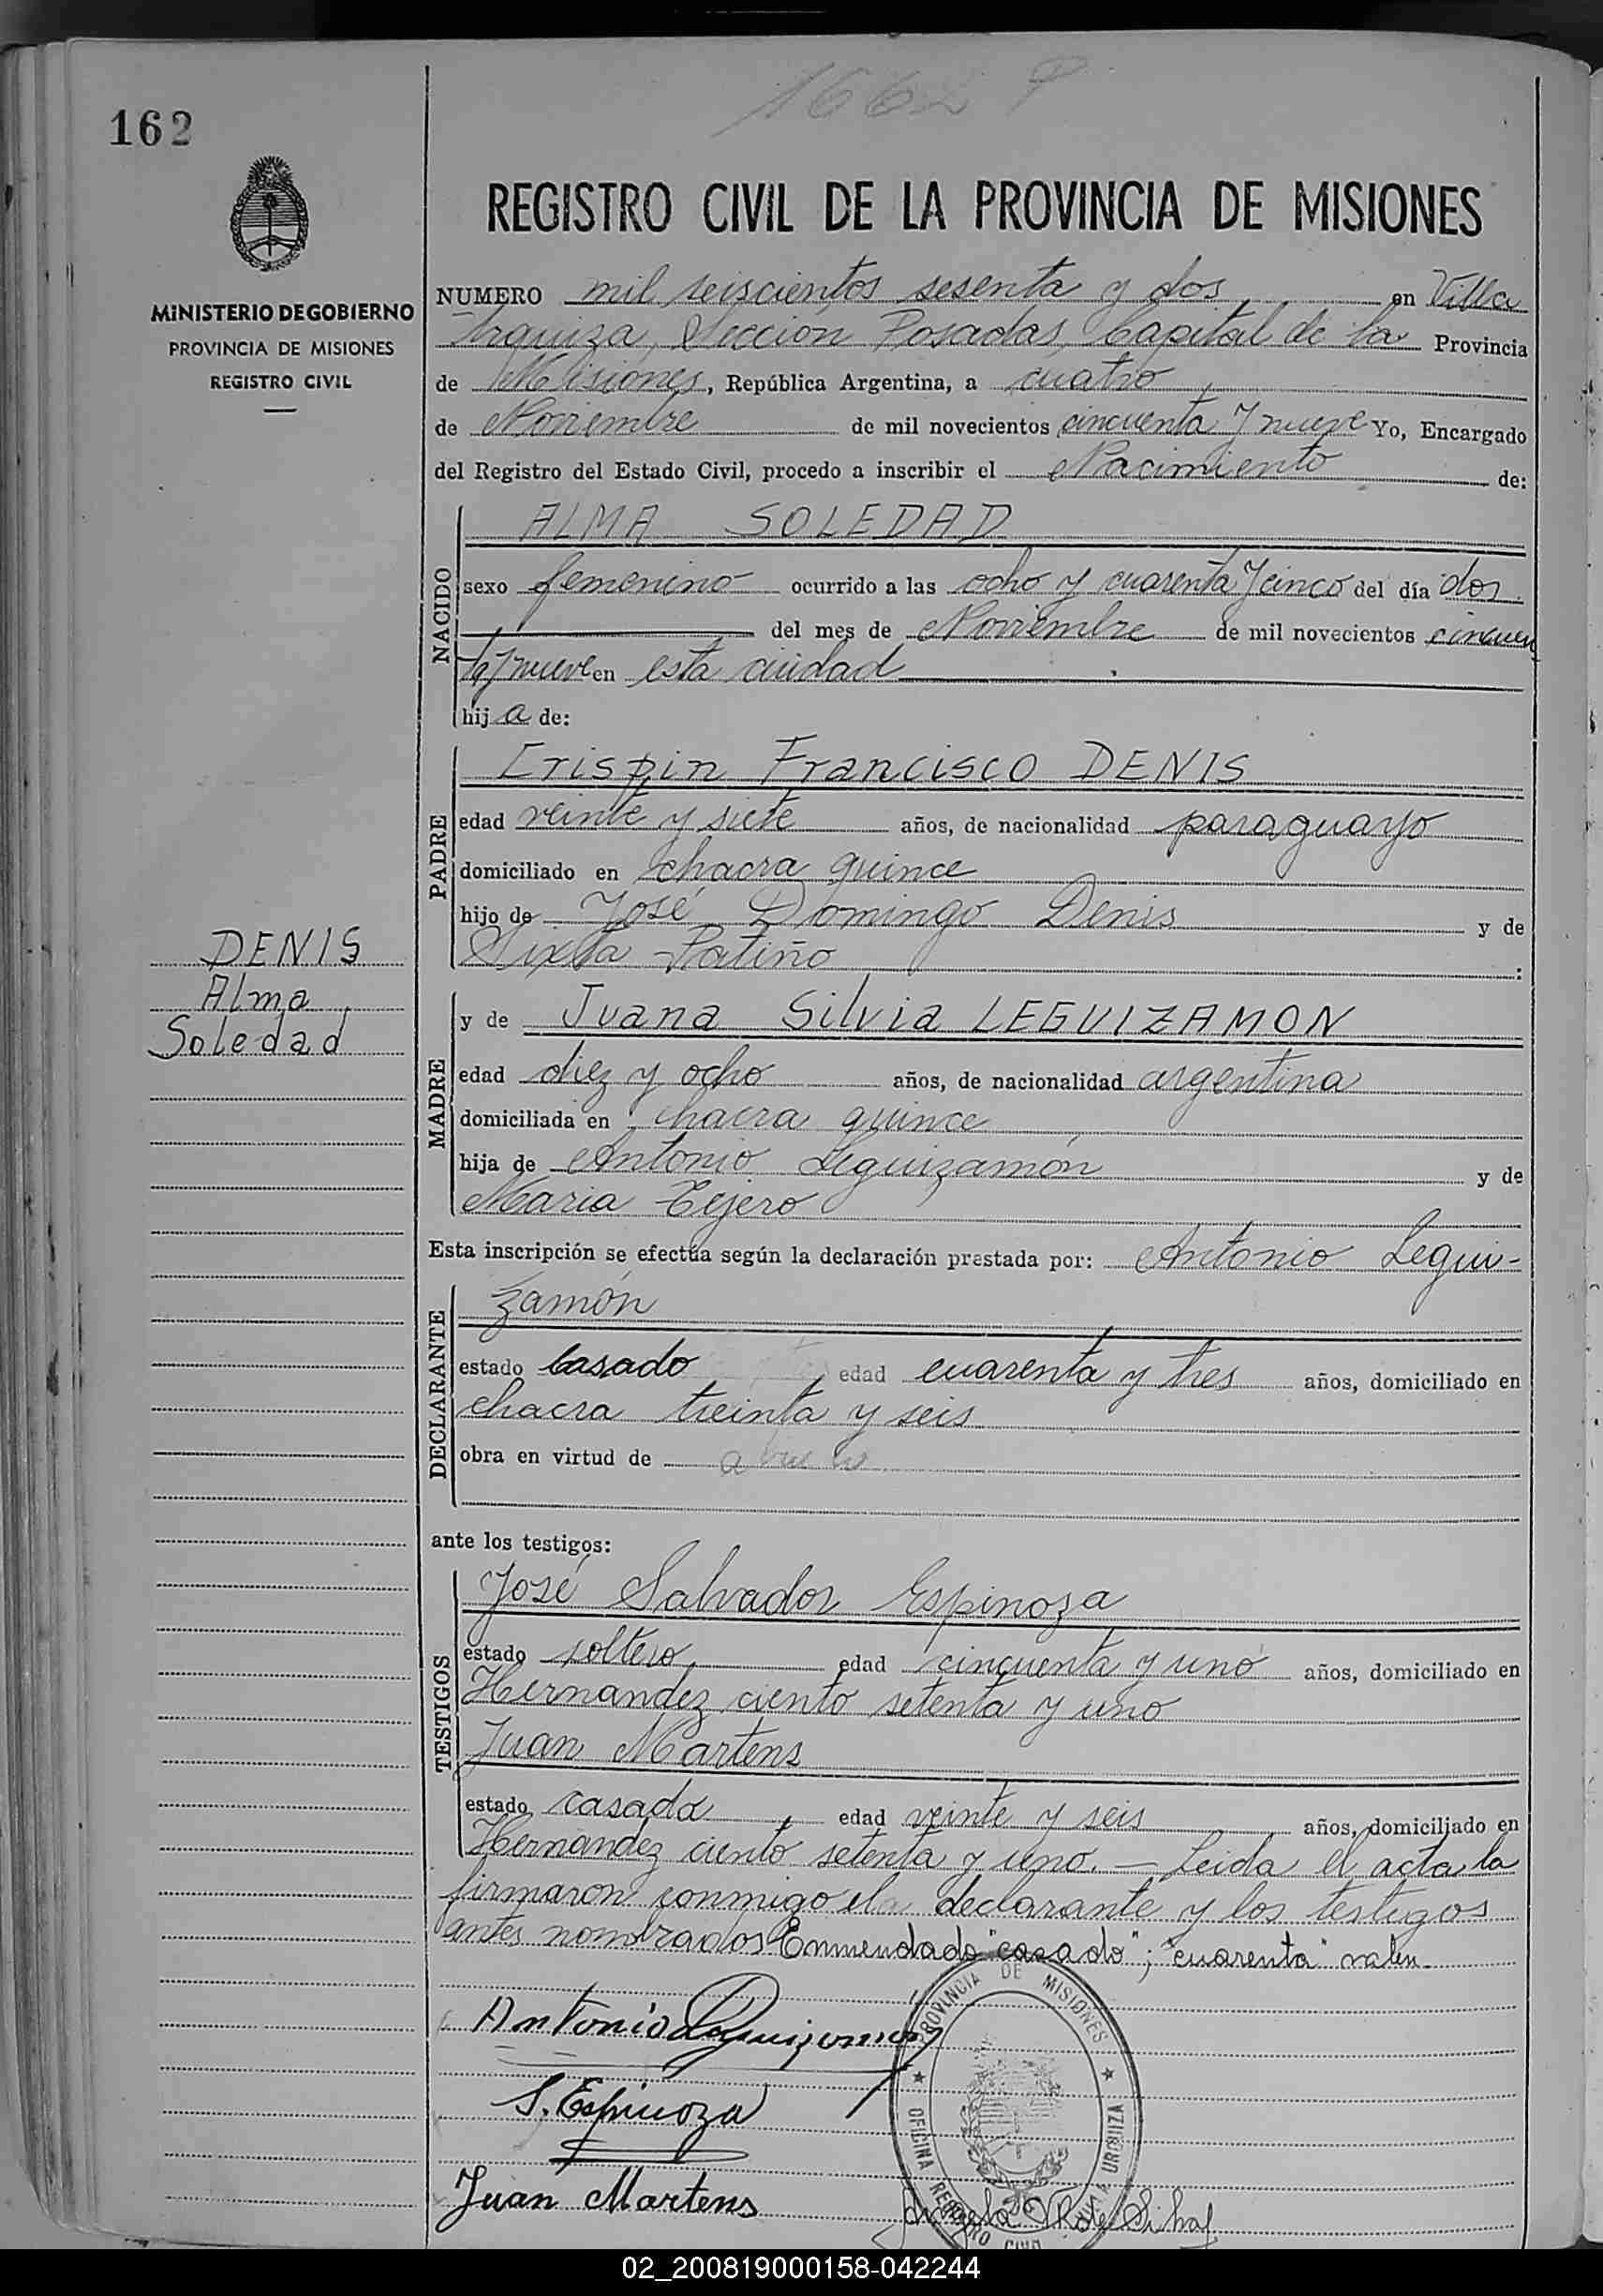 1662
162
MINISTERIO DE GOBIERNO
PROVINCIA DE MISIONES
REGISTRO CIVIL
REGISTRO CIVIL DE LA PROVINCIA DE MISIONES
NUMERO mil seiscientos sesenta y dos en Villa
Urquiza, Sección Posadas, Capital de la Provincia
de Misiones, República Argentina, a cuatro
de Noviembre de mil novecientos cincuenta y nueve Yo, Encargado
del Registro del Estado Civil, procedo a inscribir el Nacimiento de:
NACIDO
ALMA SOLEDAD
sexo femenino ocurrido a las ocho y cuarenta y cinco del día dos
del mes de Noviembre de mil novecientos cincuen
ta y nueve en esta ciudad
hija de:
PADRE
Crispin Francisco DENIS
edad veinte y siete años, de nacionalidad paraguayo
domiciliado en chacra quince
hijo de José Domingo Denis y de
Sixta Patiño
DENIS
Alma
Soledad
MADRE
y de Juana Silvia LEGUIZAMON
edad diez y ocho años, de nacionalidad argentina
domiciliada en chacra quince
hija de Antonio Leguizamón y de
Maria Tejero
Esta inscripción se efectúa según la declaración prestada por: Antonio Legui-
zamón
DECLARANTE
estado Casado edad cuarenta y tres años, domiciliado en
chacra treinta y seis
obra en virtud de abuelo
ante los testigos:
TESTIGOS
José Salvador Espinoza
estado soltero edad cincuenta y uno años, domiciliado en
Hernandez ciento setenta y uno
Juan Martens
estado casado edad veinte y seis años, domiciliado en
Hernandez ciento setenta y uno. — Leida el acta la
firmaron conmigo el declarante y los testigos
antes nombrados Enmendado "casado"; "cuarenta" valen.
PROVINCIA DE MISIONES
OFICINA REGISTRO CIVIL VILLA URQUIZA
Antonio Leguizamón
S. Espinoza
Juan Martens
02_200819000158-042244